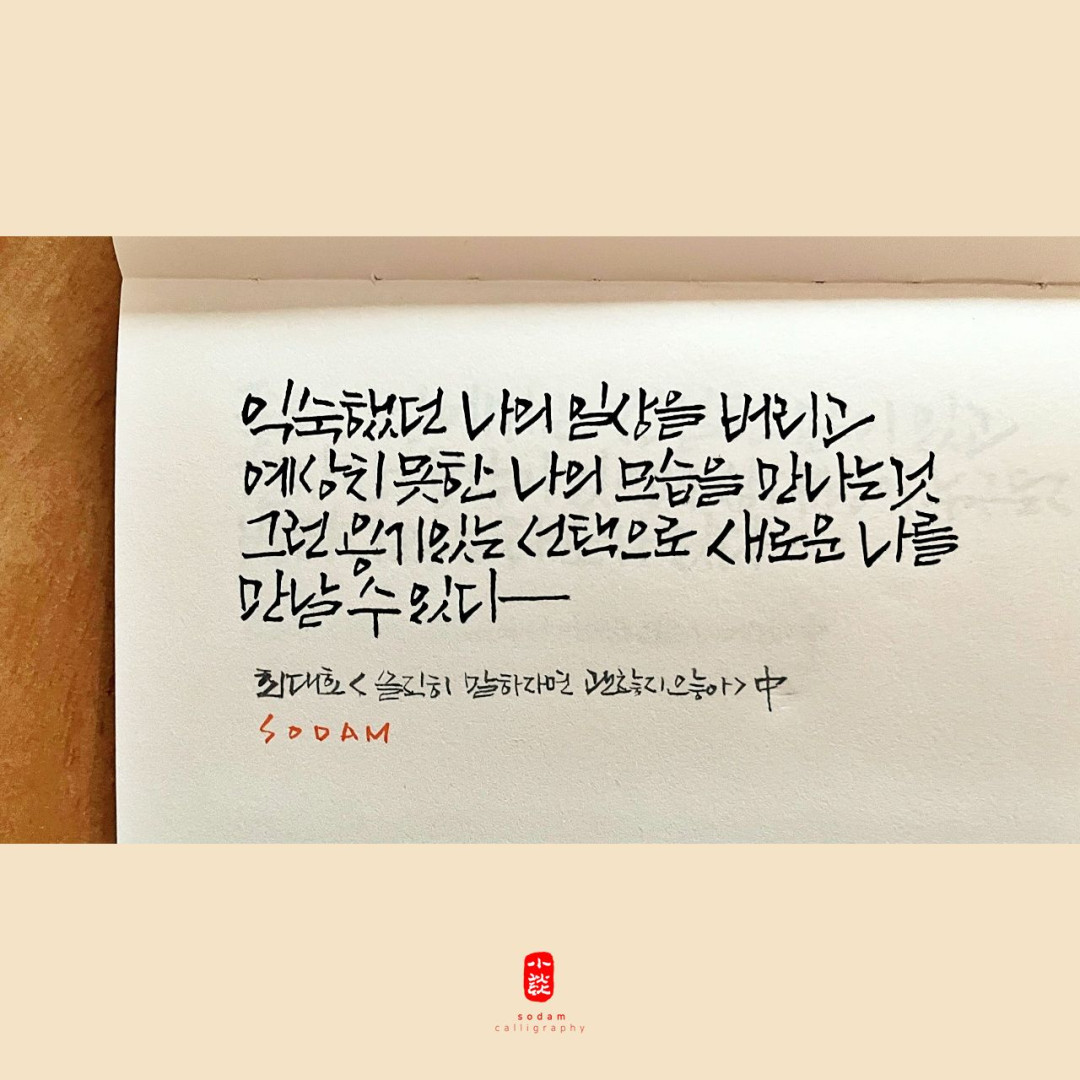 익숙했던 나의 일상을 버리고
예상치 못한 나의 모습을 만나는것
그런 용기있는 선택으로 새로운 나를
만날 수 있다
최대호 < 솔직히 말하자면 괜찮지 않아 > 中
SODAM
小談
sodam
calligraphy